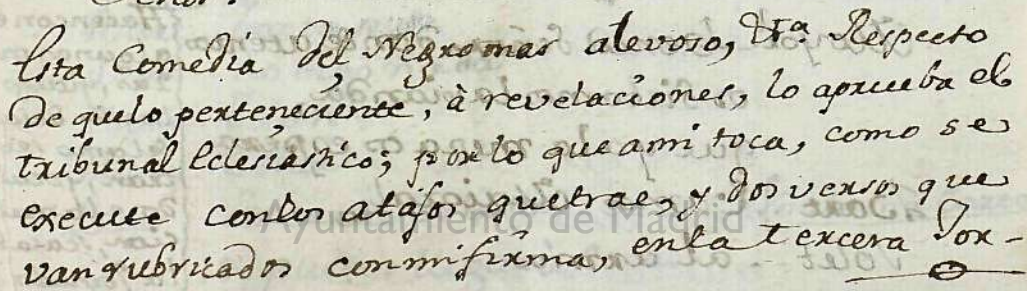 Señor.
Esta Comedia del Negro mas alevoso, &ra. Respecto
de quelo perteneciente, à revelaciones, lo aprueba el
tribunal Eclesiastico; por lo que ami toca, como se
execute conlos atajos quetrae, y dos versos que
van rubricados conmifirma, enla tercera Jor-
Ayuntamiento de Madrid